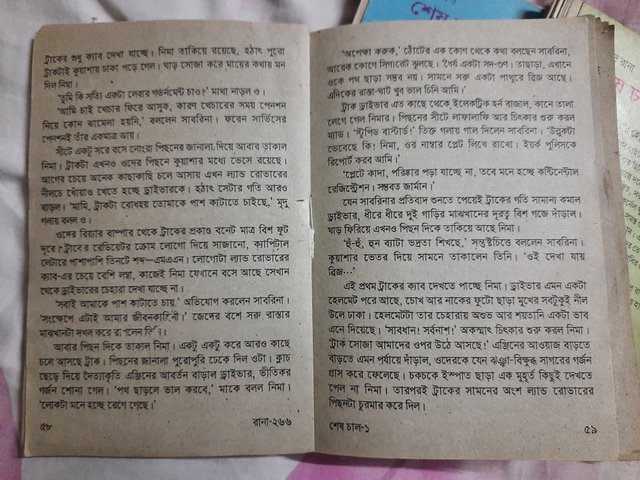 ট্রাকের শুধু ক্যাব দেখা যাচ্ছে। নিমা তাকিয়ে রয়েছে, হঠাৎ পুরো
ট্রাকটাই কুয়াশায় ঢাকা পড়ে গেল। ঘাড় সোজা করে মায়ের কথায় মন
দিল নিমা।
'তুমি কি সত্যি একটা লেবার গভর্নমেন্ট চাও?' মাথা নাড়ল ও।
'আমি চাই খেচার ফিরে আসুক, কারণ খেচারের সময় পেনশন
নিয়ে কোন ঝামেলা হয়নি,' বললেন সাবরিনা। ফরেন সার্ভিসের
পেনশনই তাঁর একমাত্র আয়।
সীটে একটু সরে বসে নোংরা পিছনের জানালা দিয়ে আবার তাকাল
নিমা। ট্রাকটা এখনও ওদের পিছনে কুয়াশার মধ্যে ভেসে রয়েছে।
আগের চেয়ে অনেক কাছাকাছি চলে আসায় এখন ল্যান্ড রোভারের
নীলচে ধোঁয়াও খেতে হচ্ছে ড্রাইভারকে। হঠাৎ সেটার গতি আরও
বাড়ল। 'মামি, ট্রাকটা বোধহয় তোমাকে পাশ কাটাতে চাইছে,' মৃদু
গলায় বলল ও।
ওদের রিয়ার বাম্পার থেকে ট্রাকের প্রকাণ্ড বনেট মাত্র বিশ ফুট
দূরে। ট্রাকের রেডিয়েটর ক্রোম লোগো দিয়ে সাজানো, ক্যাপিটাল
লেটারে পাশাপাশি তিনটে শব্দ—এমএএন। লোগোটা ল্যান্ড রোভারের
ক্যাব-এর চেয়ে বেশি লম্বা, কাজেই নিমা যেখানে বসে আছে সেখান
থেকে ড্রাইভারের চেহারা দেখা যাচ্ছে না।
'সবাই আমাকে পাশ কাটাতে চায়,' অভিযোগ করলেন সাবরিনা।
'সংক্ষেপে এটাই আমার জীবনকাহিনী।' জেদের বশে সরু রাস্তার
মাঝখানটা দখল করে রাখলেন তিনি।
আবার পিছন দিকে তাকাল নিমা। একটু একটু করে আরও কাছে
চলে আসছে ট্রাক। পিছনের জানালা পুরোপুরি ঢেকে দিল ওটা। ক্লাচ
ছেড়ে দিয়ে দৈত্যাকৃতি এঞ্জিনের আবর্তন বাড়াল ড্রাইভার, ভীতিকর
গর্জন শোনা গেল। 'পথ ছাড়লে ভাল করবে,' মাকে বলল নিমা।
'লোকটা মনে হচ্ছে রেগে গেছে।'
৫৮ রানা-২৬৬
'অপেক্ষা করুক,' ঠোঁটের এক কোণ থেকে কথা বলছেন সাবরিনা,
আরেক কোণে সিগারেট ঝুলছে। 'ধৈর্য একটা সদ-গুণ। তাছাড়া, এখানে
ওকে পথ ছাড়া সম্ভব নয়। সামনে সরু একটা পাথুরে ব্রিজ আছে।
এদিকের রাস্তা-ঘাট খুব ভাল চিনি আমি।'
ট্রাক ড্রাইভার এত কাছে থেকে ইলেকট্রিক হর্ন বাজাল, কানে তালা
লেগে গেল নিমার। পিছনের সীটে লাফালাফি আর চিৎকার শুরু করল
ম্যান্ড। 'স্টুপিড বাস্টার্ড!' তিক্ত গলায় গাল দিলেন সাবরিনা। 'উল্লুকটা
ভেবেছে কি! নিমা, ওর নাম্বার প্লেট লিখে রাখো। ইয়র্ক পুলিসকে
রিপোর্ট করব আমি।'
'প্লেটে কাদা, পরিষ্কার পড়া যাচ্ছে না, তবে মনে হচ্ছে কন্টিনেন্টাল
রেজিস্ট্রেশন। সম্ভবত জার্মান।'
যেন সাবরিনার প্রতিবাদ শুনতে পেয়েই ট্রাকের গতি সামান্য কমাল
ড্রাইভার, ধীরে ধীরে দুই গাড়ির মাঝখানের দূরত্ব বিশ গজে দাঁড়াল।
ঘাড় ফিরিয়ে এখনও পিছন দিকে তাকিয়ে আছে নিমা।
'হুঁ-হুঁ, হুন ব্যাটা ভদ্রতা শিখছে,' সন্তুষ্টচিত্তে বললেন সাবরিনা।
কুয়াশার ভেতর দিয়ে সামনে তাকালেন তিনি। 'ওই দেখা যায়
ব্রিজ...'
এই প্রথম ট্রাকের ক্যাব দেখতে পাচ্ছে নিমা। ড্রাইভার এমন একটা
হেলমেট পরে আছে, চোখ আর নাকের ফুটো ছাড়া মুখের সবটুকুই নীল
উলে ঢাকা। হেলমেটটা তার চেহারায় অশুভ আর শয়তানি একটা ভাব
এনে দিয়েছে। 'সাবধান! সর্বনাশ!' অকস্মাৎ চিৎকার শুরু করল নিমা।
'ট্রাক সোজা আমাদের ওপর উঠে আসছে!' এঞ্জিনের আওয়াজ বাড়তে
বাড়তে এমন পর্যায়ে দাঁড়াল, ওদেরকে যেন ঝঞ্ঝা-বিক্ষুব্ধ সাগরের গর্জন
গ্রাস করে ফেলেছে। চকচকে ইস্পাত ছাড়া এক মুহূর্ত কিছুই দেখতে
পেল না নিমা। তারপরই ট্রাকের সামনের অংশ ল্যান্ড রোভারের
পিছনটা চুরমার করে দিল।
শেষ চাল-১ ৫৯